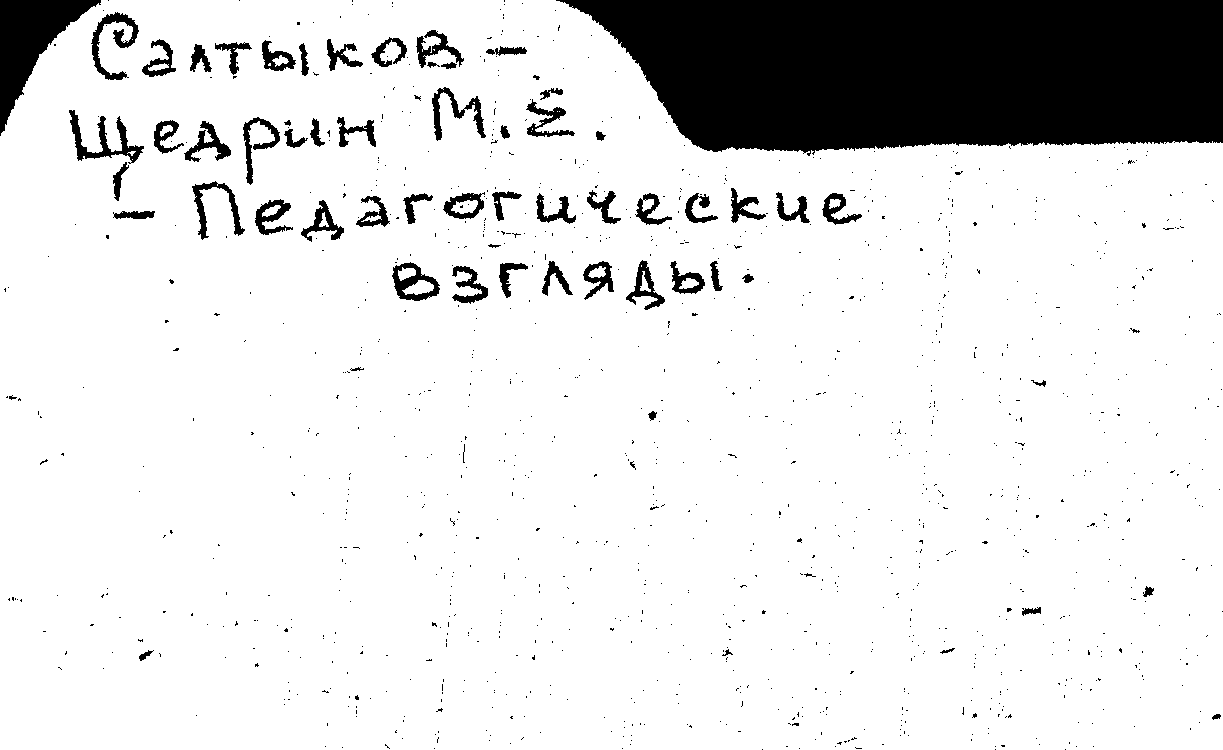 Салтыков –
Щедрин М. Е.
– Педагогические
взгляды.